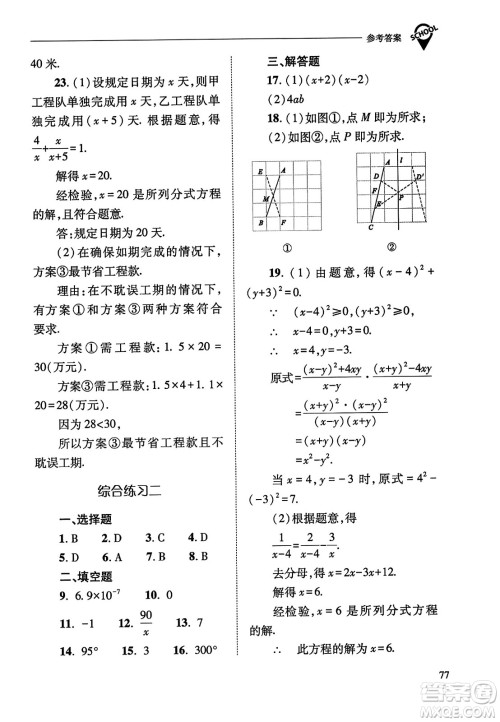 参考答案
SCHOOL
40 米.
23. (1) 设规定日期为 x 天，则甲
工程队单独完成用 x 天，乙工程队单独
完成用 (x+5) 天. 根据题意，得
4/x + x/(x+5) = 1.
解得 x=20.
经检验，x=20 是所列分式方程
的解，且符合题意.
答：规定日期为 20 天.
(2) 在确保如期完成的情况下，
方案③最节省工程款.
理由：在不耽误工期的情况下，
只有方案①和方案③两种方案符合
要求.
方案①需工程款：1.5×20=
30(万元).
方案③需工程款：1.5×4+1.1×
20=28(万元).
因为 28<30，
所以方案③最节省工程款且不
耽误工期.
综合练习二
一、选择题
1. B 2. D 3. C 4. D
5. D 6. D 7. C 8. B
二、填空题
9. 6.9×10⁻⁷ 10. √
11. -1 12. 90/x 13. 2
14. 95° 15. 3 16. 300°
三、解答题
17. (1) (x+2)(x-2)
(2) 4ab
18. (1) 如图①，点 M 即为所求；
(2) 如图②，点 P 即为所求.
E A
M
F B
①
A l
D D'
P
E
C
②
19. (1) 由题意，得 (x-4)²+
(y+3)²=0.
∵ (x-4)²≥0，(y+3)²≥0，
∴ x=4，y=-3.
原式=((x-y)²+4xy)/(x-y) · (x-y)²/(x+y)
=(x+y)²·(x-y)²/((x-y)(x+y))
=x²-y².
当 x=4，y=-3 时，原式=4²-
(-3)²=7.
(2) 根据题意，得
1/(x-4)=2/(x-4)-4/(x-y)²
去分母，得 x-4=2x-8-4+2.
解得 x=6.
经检验，x=6 是所列分式方程
的解.
∴ 此方程的解为 x=6.
77